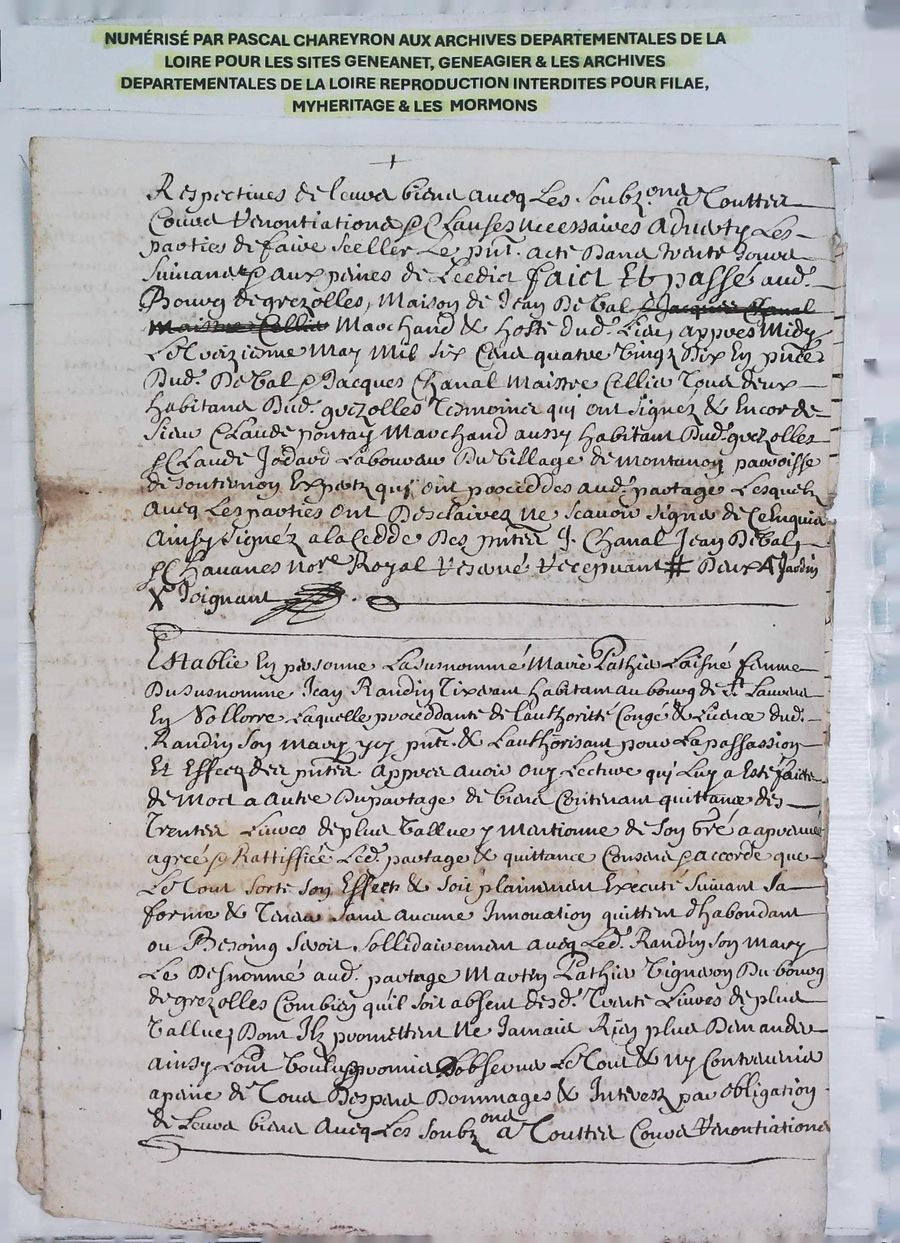 NUMÉRISÉ PAR PASCAL CHAREYRON AUX ARCHIVES DEPARTEMENTALES DE LA
LOIRE POUR LES SITES GENEANET, GENEAGIER & LES ARCHIVES
DEPARTEMENTALES DE LA LOIRE REPRODUCTION INTERDITES POUR FILAE,
MYHERITAGE & LES MORMONS
Respectives de leurs biens avecq Les Soubz.ons a Touttes
Cours Renontiations & Clauses necessaires adverty Les
parties de faire sceller Le pnt. acte Dans trente Jours
suivans & aux peines de Leedict faict Et passé aud.
Bourg de grezolles, Maison de Jean DeBal & Jacques Chanal
Maistre Cellier Marchand & hoste dud. Lieu, appres Midy
Le treizieme May Mil six Cens quatre vingz Dix En pnce
Dud. DeBal & Jacques Chanal Maistre Cellier Tous deux
habitans Dud. grezolles Tesmoins qui ont signéz & Encor de
sieur Claude pontay Marchand aussy habitant Dud. grezolles
& Claude Jodard Laboureur Du village de Montanoy parroisse
de soutternon Expertz qui ont proceddes aud. partage Lesquelz
avecq Les parties ont Desclairez ne scavoir signer de ce Enquis
Ainsy signéz a la cedde Des pntes J. Chanal Jean DeBal,
& Chavanes No.re Royal Reservé Recepvant Deux
Joignant
Establie En personne La susnommé Marie Pathier Laisné femme
Du susnommé Jean Randin Tixerant habitant au bourg de St Laurens
En Vollorre Laquelle proceddante de L'authoritté Congé & Licence dud.
Randin son mary, yci pnt. & L'authorisant pour La passassion
Et Effect des pntes appres avoir ouy Lecture qui Luy a Esté faicte
de Mot a Autre Du partage de biens Contenant quittance des
Trentes Livres de plus vallue y mentionné de son gré a approuvé
agreé & Rattiffiée Led. partage & quittance Consent & accorde que
Le Tout sorte son Effect & soit plainement Executé suivant sa
forme & Teneur sans aucune Innovation quittent d'habondant
ou Besoing seroit sollidairement avecq Led. Randin son mary
Le Desnommé aud. partage Martin Pathier Vigneron Du bourg
de grezolles Combien qu'il soit absent desd. Trente Livres de plus
vallue, Dont Ilz promettent Ne Jamais Rien plus Demander
ainsy L'ont voulu & promis observer Le Tout & Ny Contrevenir
a peine de Tous Despens Dommages & Interest par obligation
de Leurs biens Avecq Les Soubz.ons a Touttes Cours Renontiations